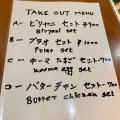 TAKE OUT MENU
A-ビリヤニ セット ¥900
Biryani set
B-プラオ セット ¥1000
Pulao set
C-キーマ たまご セット-¥900
Keema egg set
D-コ バターチキン セット-¥900
Butter chicken set